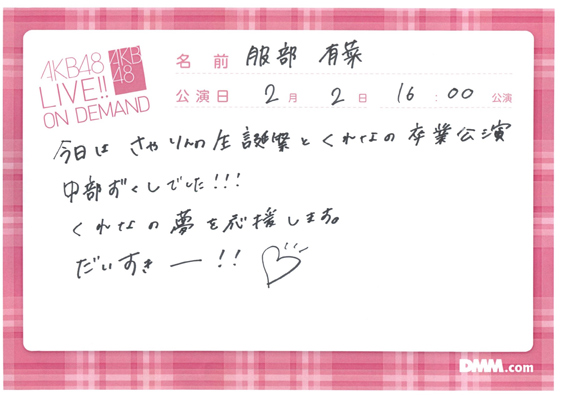 AKB48
LIVE!!
ON DEMAND
AKB
48
名前 服部 有菜
公演日 2月 2日 16:00 公演
今日は さやりんの生誕祭とくれはの卒業公演
中部ずくしでした!!!
くれはの夢を応援します。
だいすきー!!
DMM.com